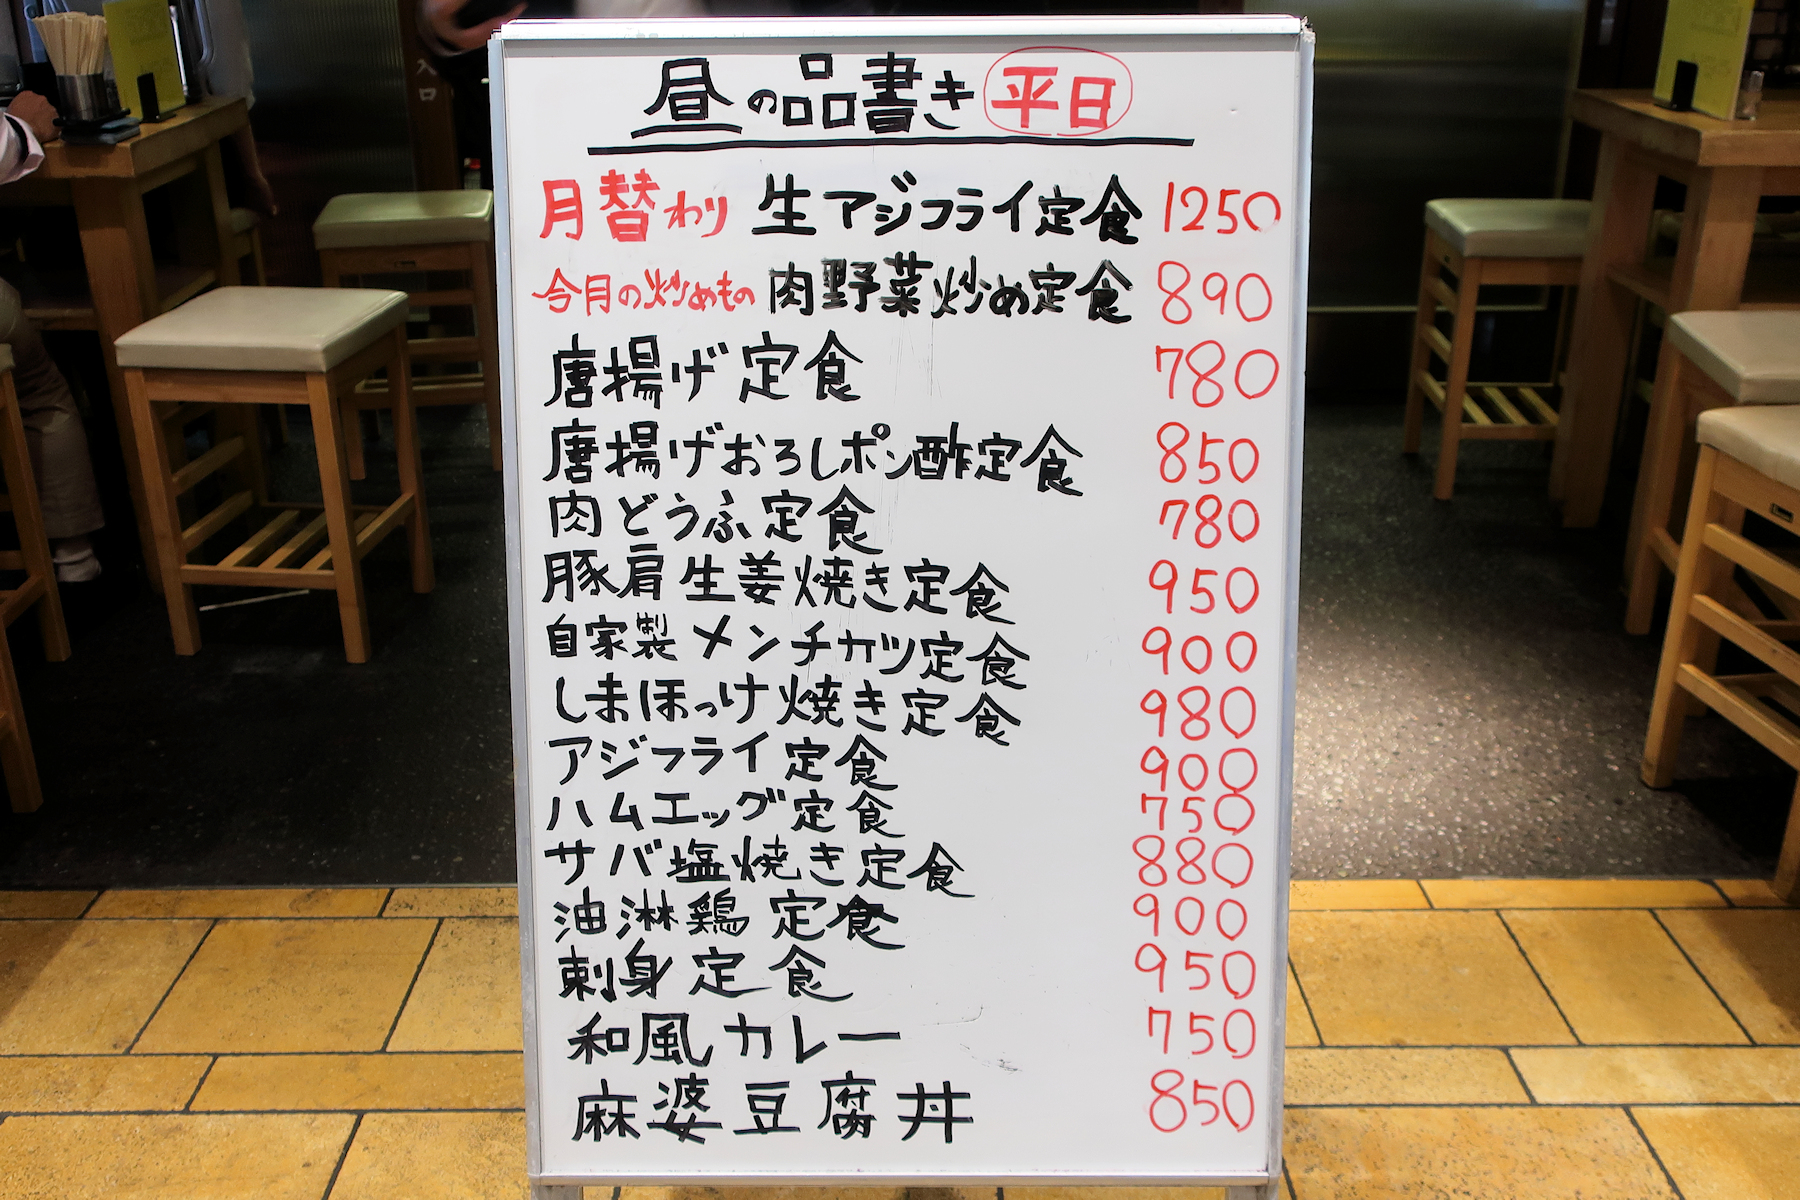 入口
昼の品書き 平日
月替わり 生アジフライ定食 1250
今月の炒めもの 肉野菜炒め定食 890
唐揚げ定食 780
唐揚げおろしポン酢定食 850
肉どうふ定食 780
豚肩生姜焼き定食 950
自家製メンチカツ定食 900
しまほっけ焼き定食 980
アジフライ定食 900
ハムエッグ定食 750
サバ塩焼き定食 880
油淋鶏定食 900
刺身定食 950
和風カレー 750
麻婆豆腐丼 850